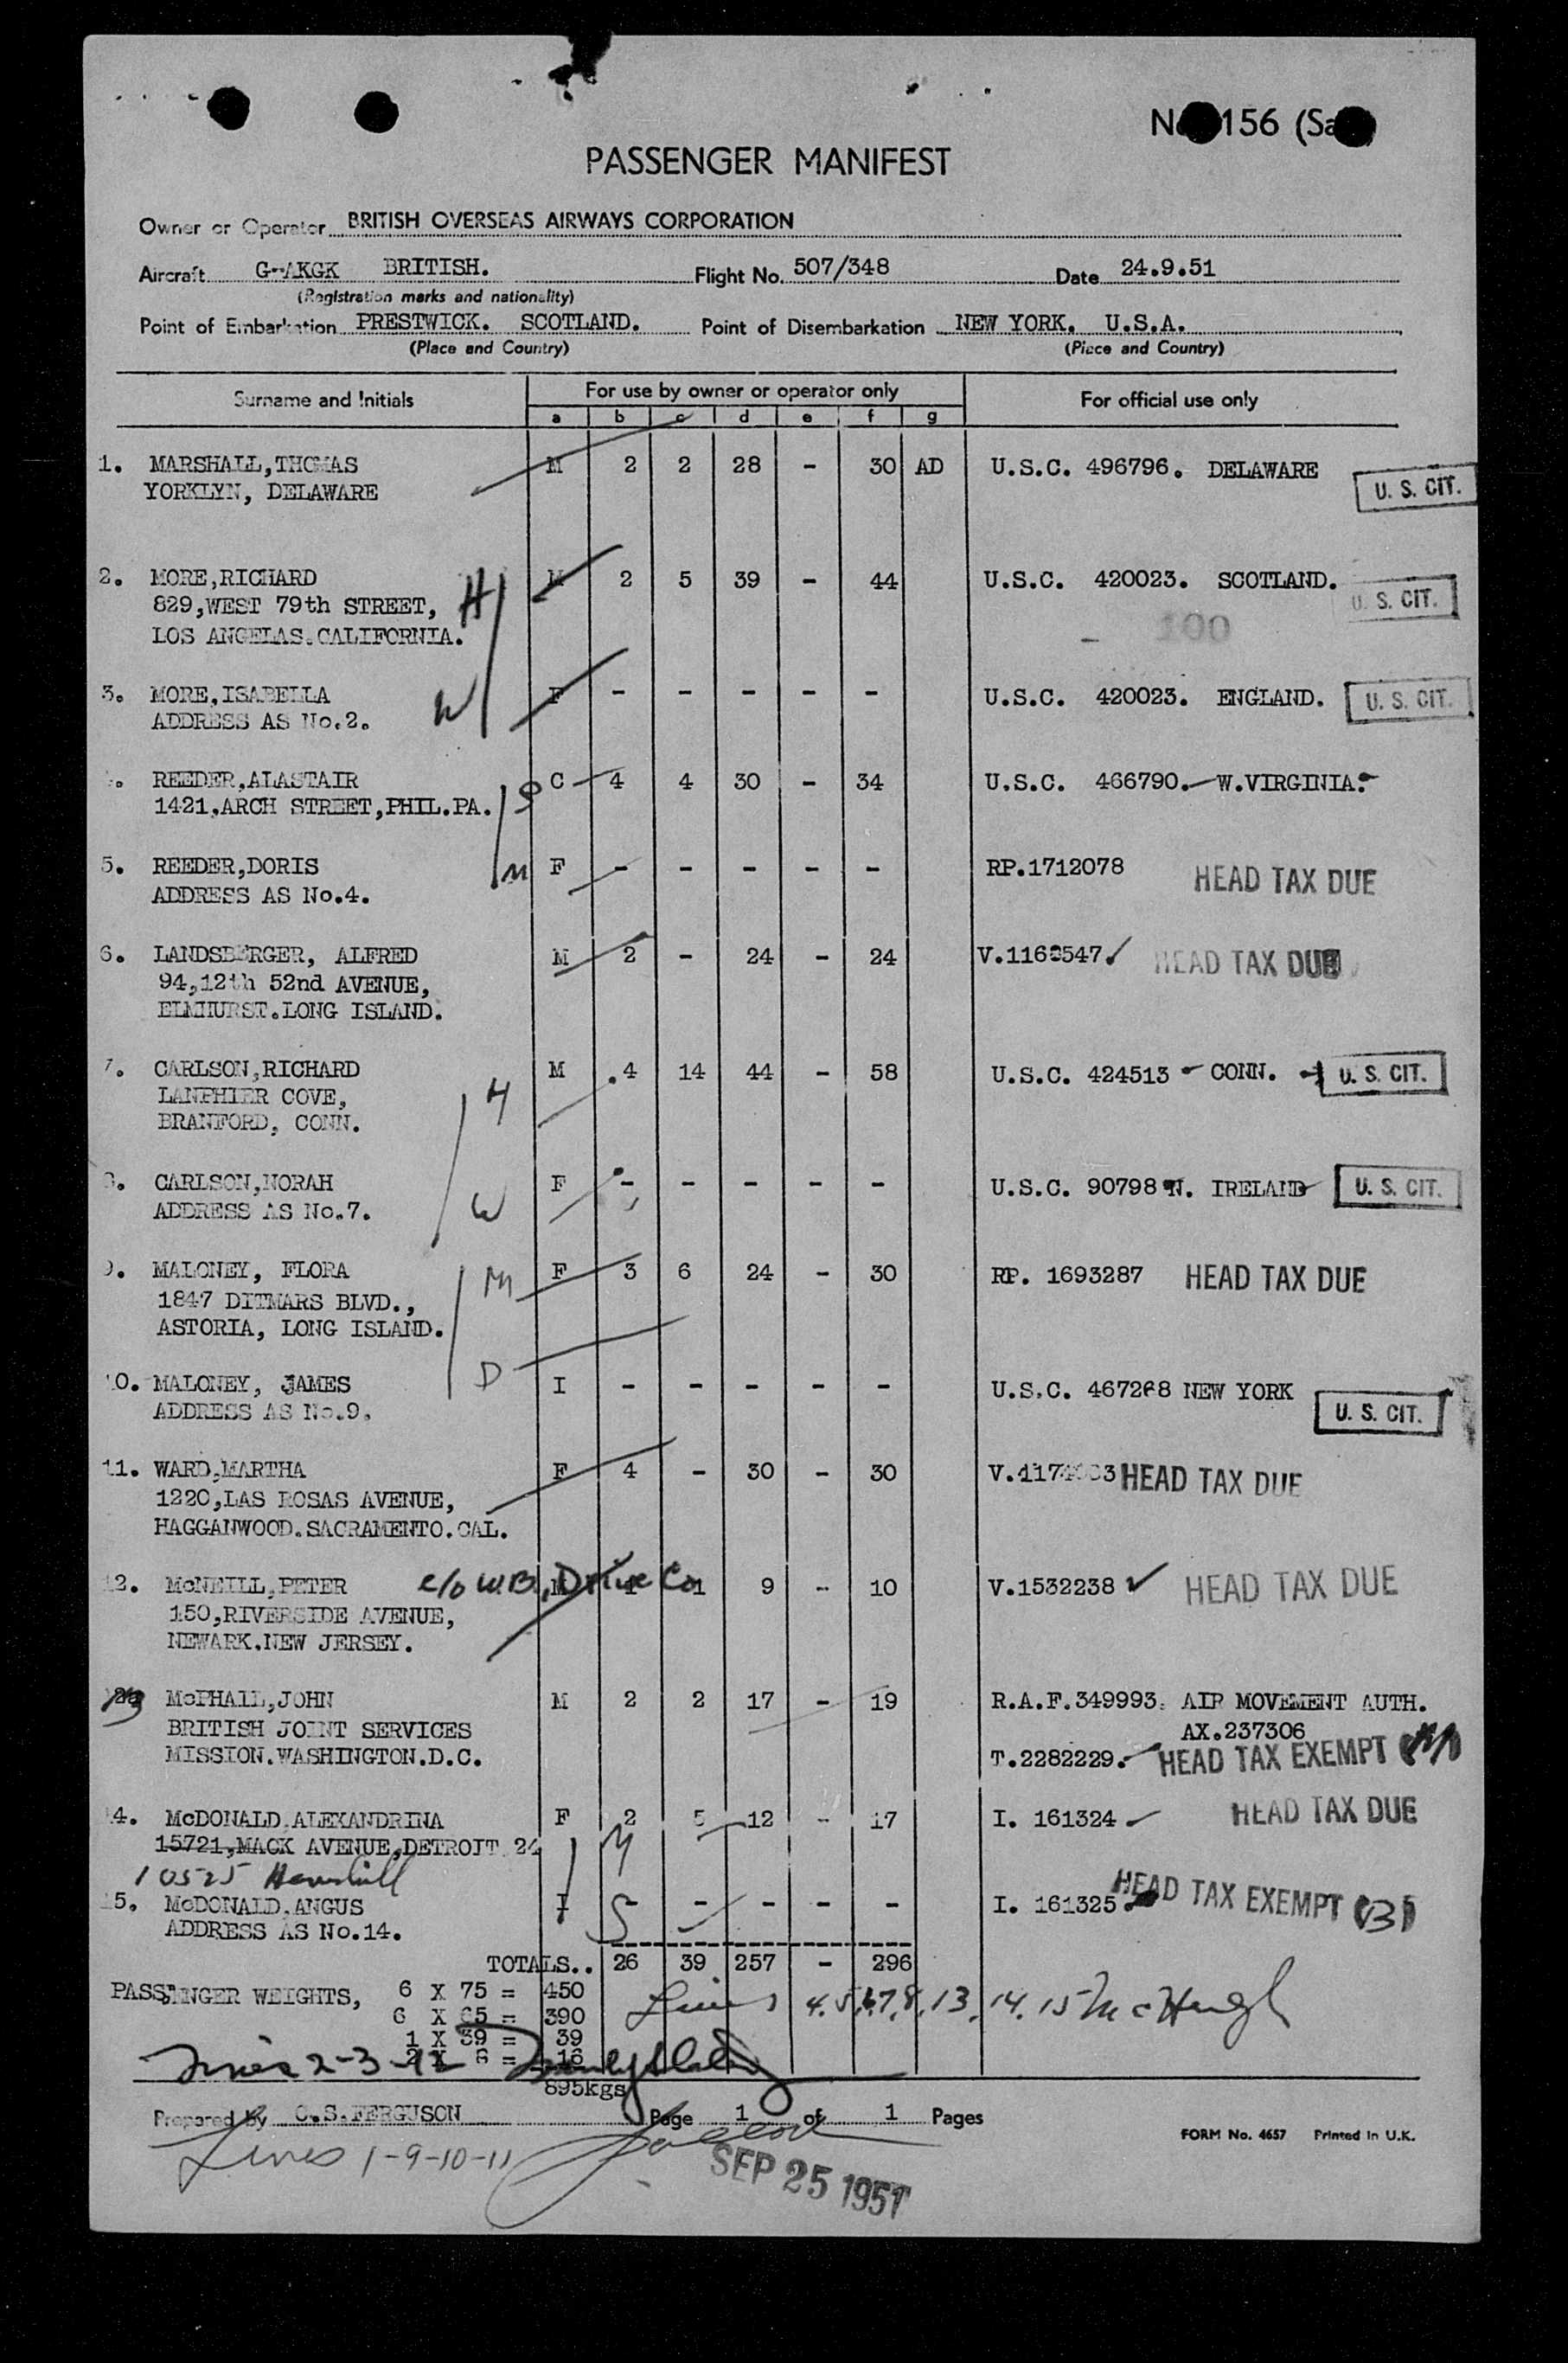 156
PASSENGER MANIFEST
Owner or Operator BRITISH OVERSEAS AIRWAYS CORPORATION
Aircraft G-AKGK BRITISH. Flight No. 507/348 Date 24.9.51
(Registration marks and nationality)
Point of Embarkation PRESTWICK. SCOTLAND. Point of Disembarkation NEW YORK. U.S.A.
(Place and Country) (Place and Country)
Surname and Initials For use by owner or operator only For official use only
a b c d e f g
1. MARSHALL,THOMAS M 2 2 28 - 30 AD U.S.C. 496796. DELAWARE
YORKLYN, DELAWARE U. S. CIT.
2. MORE,RICHARD H M 2 5 39 - 44 U.S.C. 420023. SCOTLAND.
829,WEST 79th STREET, U. S. CIT.
LOS ANGELAS.CALIFORNIA. - 100
3. MORE,ISABELLA W F - - - - - U.S.C. 420023. ENGLAND. U. S. CIT.
ADDRESS AS No.2.
REEDER,ALASTAIR S C 4 4 30 - 34 U.S.C. 466790. W.VIRGINIA.
1421,ARCH STREET,PHIL.PA.
5. REEDER,DORIS M F - - - - - RP.1712078 HEAD TAX DUE
ADDRESS AS No.4.
6. LANDSBERGER, ALFRED M 2 - 24 - 24 HEAD TAX DUE
94,12th 52nd AVENUE,
ELMHURST.LONG ISLAND.
7. CARLSON,RICHARD H M 4 14 44 - 58 U.S.C. 424513 CONN. U. S. CIT.
LANPHIER COVE,
BRANFORD, CONN.
8. CARLSON,NORAH W F - - - - - U.S.C. 90798 N. IRELAND U. S. CIT.
ADDRESS AS No.7.
9. MALONEY, FLORA M F 3 6 24 - 30 RP. 1693287 HEAD TAX DUE
1847 DITMARS BLVD.,
ASTORIA, LONG ISLAND.
D
10. MALONEY, JAMES I - - - - - U.S.C. 467268 NEW YORK
ADDRESS AS No.9. U. S. CIT.
11. WARD,MARTHA F 4 - 30 - 30 HEAD TAX DUE
1220,LAS ROSAS AVENUE,
HAGGANWOOD.SACRAMENTO.CAL.
12. McNEILL,PETER c/o W.B. Drive Co M 1 9 - 10 V.1532238 HEAD TAX DUE
150,RIVERSIDE AVENUE,
NEWARK.NEW JERSEY.
13 McPHAIL,JOHN M 2 2 17 - 19 R.A.F.349993. AIR MOVEMENT AUTH.
BRITISH JOINT SERVICES AX.237306
MISSION.WASHINGTON.D.C. T.2282229. HEAD TAX EXEMPT
14. McDONALD.ALEXANDRINA F 2 5 12 - 17 I. 161324 HEAD TAX DUE
15721,MACK AVENUE,DETROIT 24 M
10525
15. McDONALD.ANGUS I S - - - - - I. 161325 HEAD TAX EXEMPT (3)
ADDRESS AS No.14.
TOTALS.. 26 39 257 - 296
PASSENGER WEIGHTS, 6 X 75 = 450
6 X 65 = 390 Lines 4.5.6.7.8.13.14.15 McHugh
1 X 39 = 39
2 X 8 = 16
Lines 2-3-12
895kgs
Prepared by C.S.FERGUSON Page 1 of 1 Pages
FORM No. 4657 Printed in U.K.
Lines 1-9-10-11
SEP 25 1951